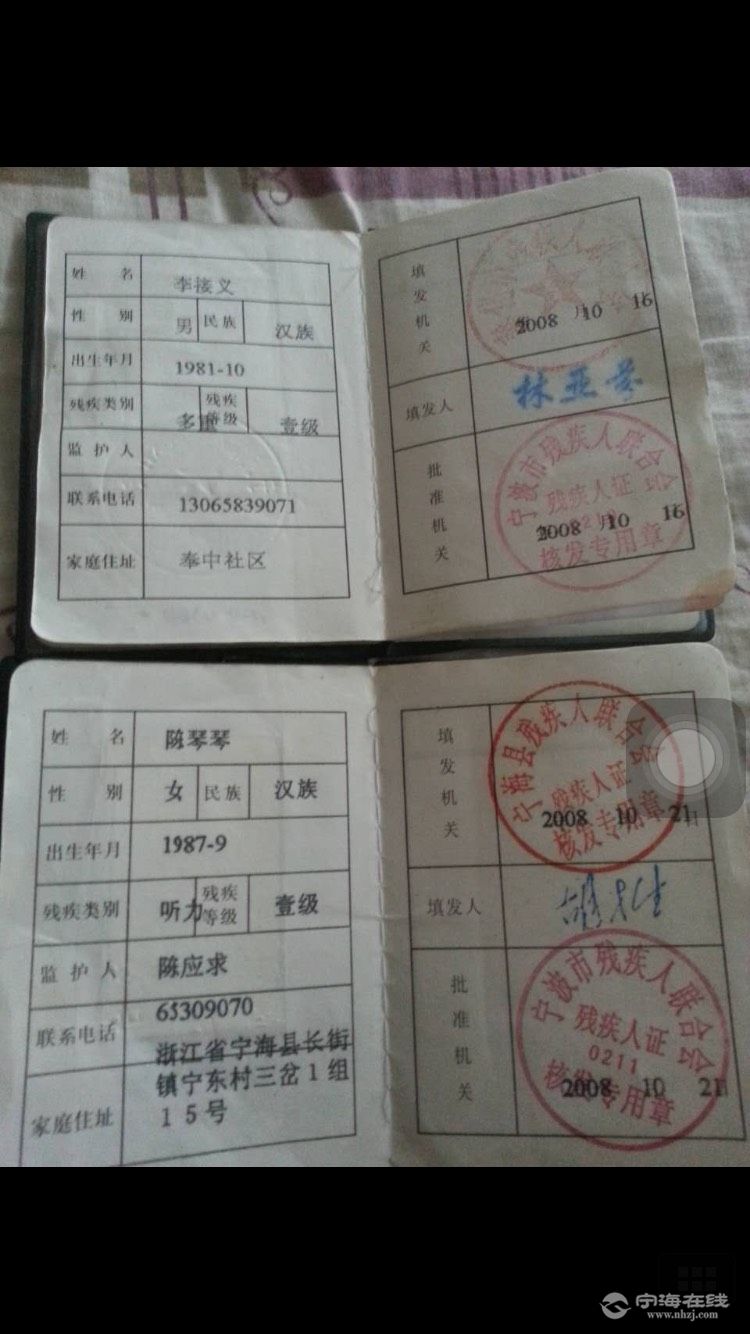 姓 名 李接义
性 别 男 民族 汉族
出生年月 1981-10
残疾类别 多重 残疾等级 壹级
监 护 人
联系电话 13065839071
家庭住址 奉中社区
填发机关
2008 月10 16
填发人 林亚芬
批准机关
宁波市残疾人联合会
残疾人证
2008 月10 16
核发专用章
姓 名 陈琴琴
性 别 女 民族 汉族
出生年月 1987-9
残疾类别 听力 残疾等级 壹级
监 护 人 陈应求
联系电话 65309070
家庭住址 浙江省宁海县长街
镇宁东村三岔1组
15号
填发机关
宁海县残疾人联合会
残疾人证
2008 10 21日
核发专用章
填发人
批准机关
宁波市残疾人联合会
残疾人证
0211
2008 10 21
核发专用章
宁海在线
www.nhzj.com